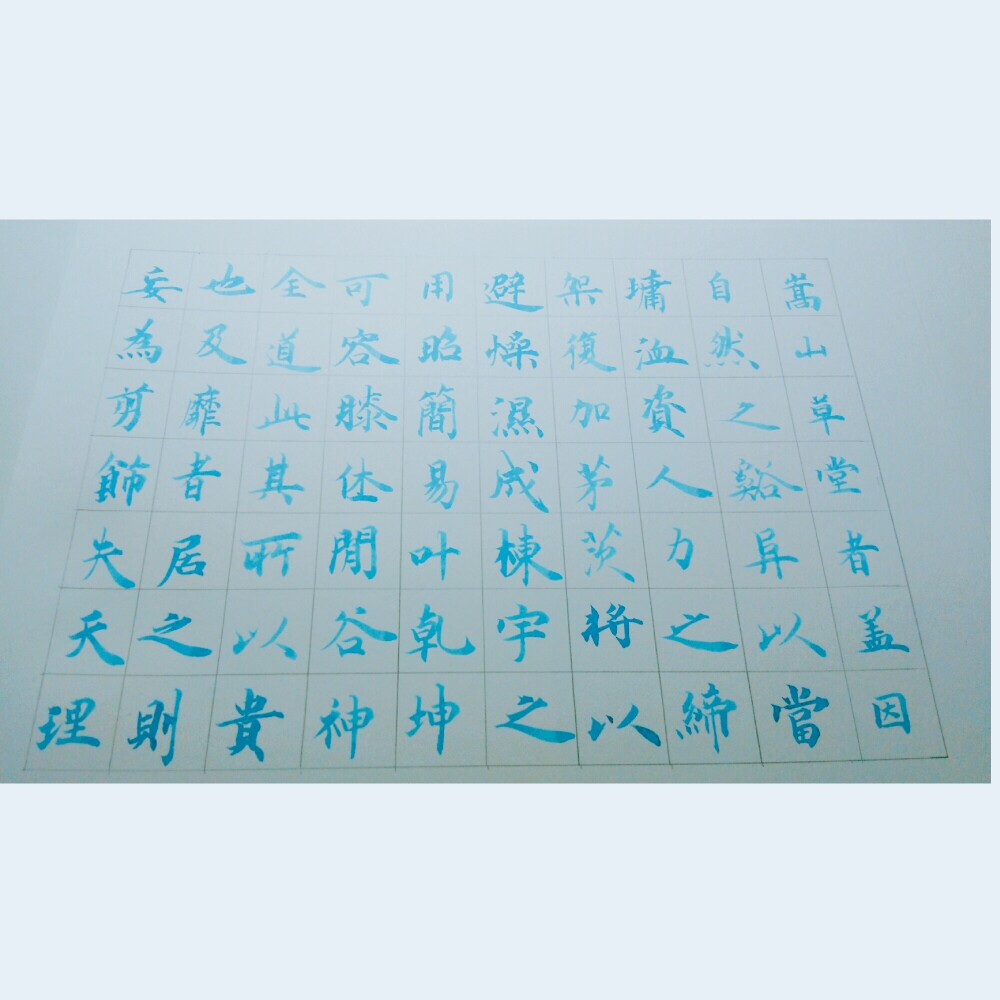 嵩山草堂者盖因
自然之谿阜以當
墉洫資人力之締
架復加茅茨將以
避燥濕成棟宇之
用昭簡易叶乾坤
可容膝休閒谷神
全道此其所以貴
也及靡者居之則
妄為剪飾失天理